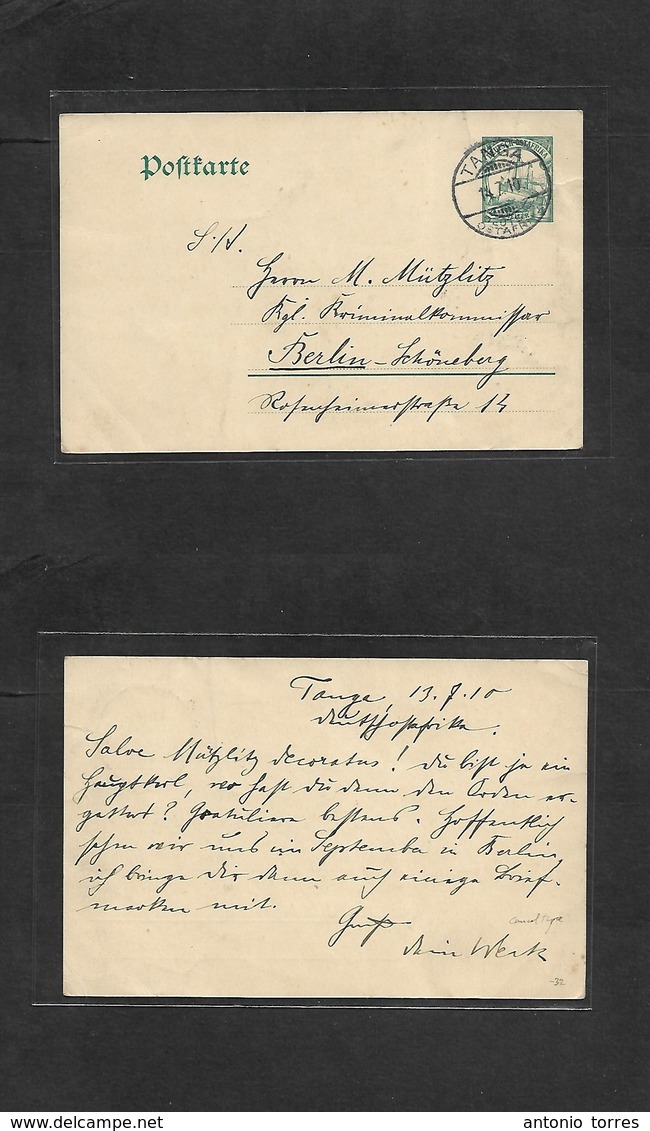 Postkarte
TANGA
14.7.10
S. H.
Herrn M. Mützlitz
Kgl. Kriminalkommissar
Berlin-Schöneberg
Rosenheimerstraße 14
Tanga, 13.7.10
Deutschostafrika.
Salve Mützlitz decoratus! Du bist ja ein
Hauptkerl, wo hast du denn den Orden er-
gattert? Gratuliere bestens. Hoffentlich
sehen wir uns im September in Berlin,
ich bringe Dir dann auch einige Brief-
marken mit.
Gruß
dein Werk
cancel type
-32
antonio torres